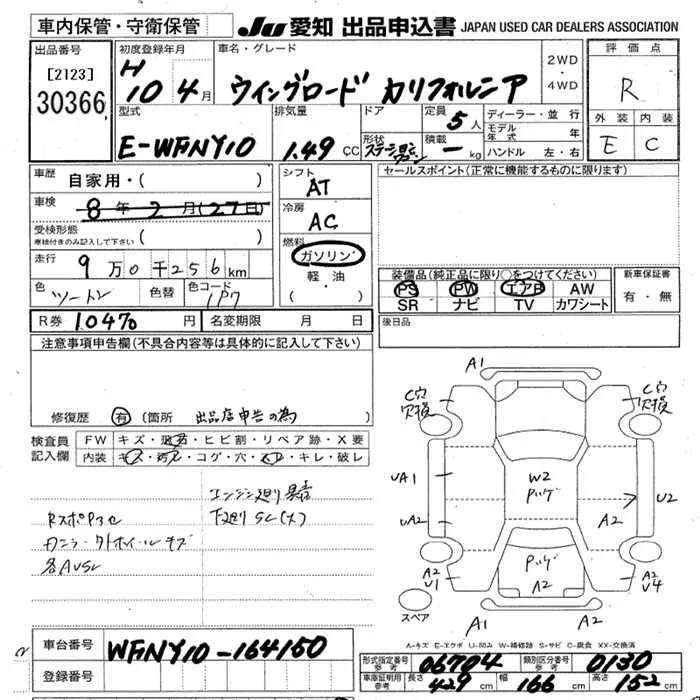 車内保管・守衛保管
JU 愛知 出品申込書 JAPAN USED CAR DEALERS ASSOCIATION
出品番号
[2123]
30366
初度登録年月
H 10 4月
車名・グレード
ウイングロード カリフォルニア
2WD
・
4WD
評価点
R
型式
E-WFNY10
排気量
1.49 CC
ドア
形状
定員
5人
積載
ー kg
ディーラー・並行
モデル年式 年
ハンドル 左・右
外装 内装
E C
車歴
自家用・( )
車検
8年2月(27日)
受検形態
車検付きのみ記入して下さい ( )
走行
9万0千256km
色
ツートン
色替
色コード
1P7
シフト
AT
冷房
AC
燃料
ガソリン
軽・油
( )
セールスポイント(正常に機能するものに限ります)
装備品(純正品に限り○をつけてください)
PS PW エアB AW
SR ナビ TV カワシート
新車保証書
有・無
R券 10470円 名変期限 月 日
後日品
注意事項申告欄(不具合内容等は具体的に記入して下さい)
修復歴 有 〔箇所 出品店申告の為 〕
検査員記入欄
FW キズ・飛石・ヒビ割・リペア跡・X要
内装 キズ・汚れ・コゲ・穴・スレ・キレ・破レ
エンジン廻り異音
RスポPヨセ
下廻りSC(大)
カニラー外ホイールキズ
各AVSC
A1
C穴
欠損
C穴
欠損
UA1
W2
Pハゲ
U2
UA2
A2
A2
U1
Pハゲ
A2
A2
U4
スペア
A1
A2
A-キズ E-エクボ U-凹み W-補修跡 S-サビ C-腐食 XX-交換済
車台番号
WFNY10-164150
登録番号
形式指定番号
参考
06704
類別区分番号
参考
0130
車庫証明用
参考
長さ 429cm 幅 166cm 高さ 152cm